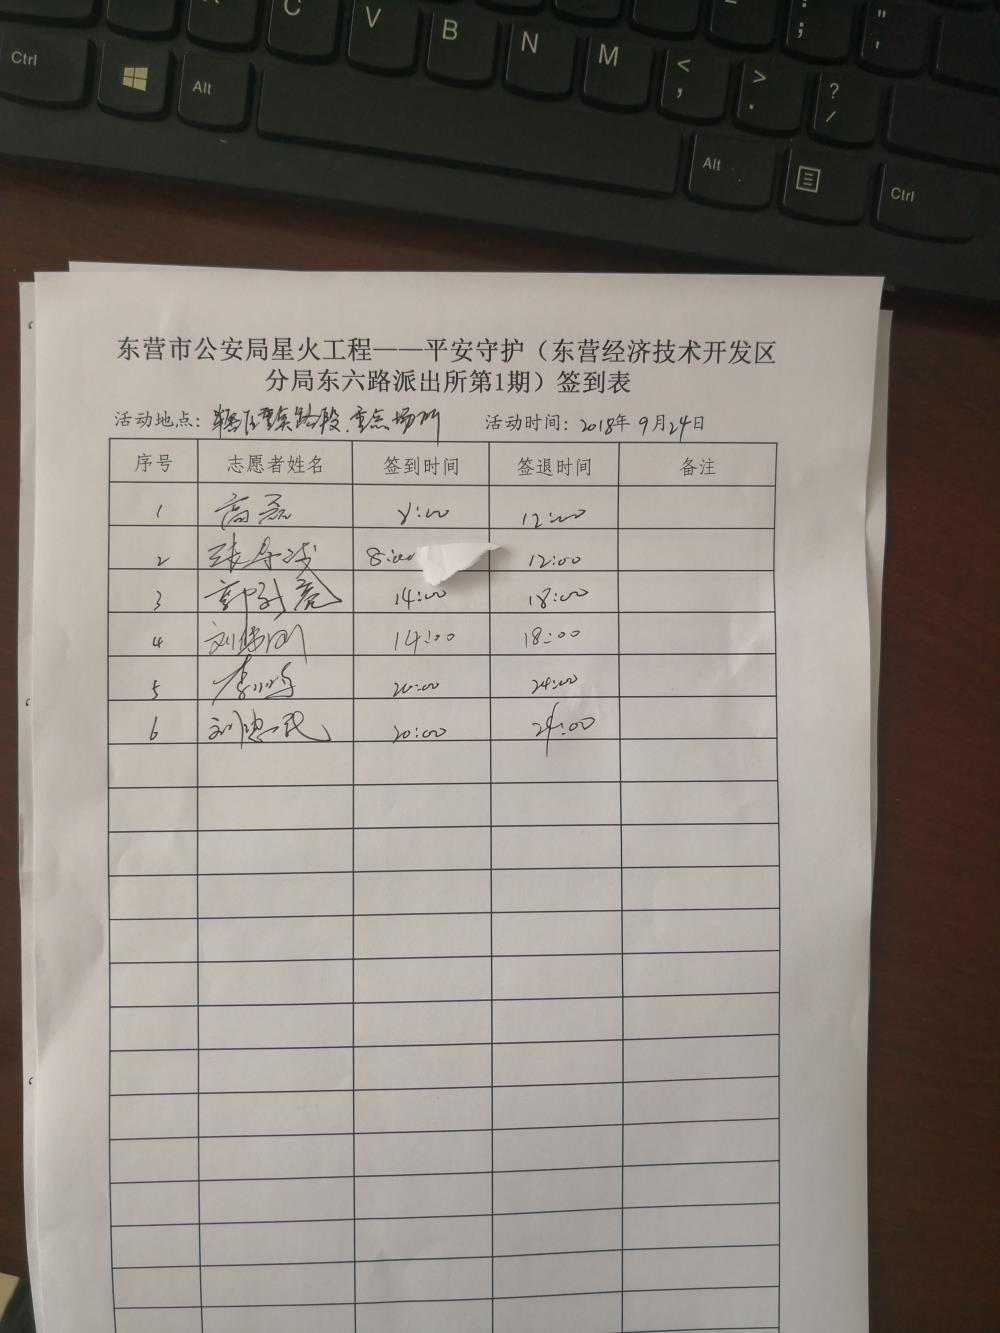 Ctrl
Alt
C
V
B
N
M
<
,
>
.
?
/
:
;
"
'
Alt
Ctrl
东营市公安局星火工程——平安守护（东营经济技术开发区
分局东六路派出所第1期）签到表
活动地点：辖区重点路段.重点场所 活动时间：2018年9月24日
序号 志愿者姓名 签到时间 签退时间 备注
1 高磊 8:00 12:00
2 8:00 12:00
3 14:00 18:00
4 刘 14:00 18:00
5 李 20:00 24:00
6 刘忠民 20:00 24:00